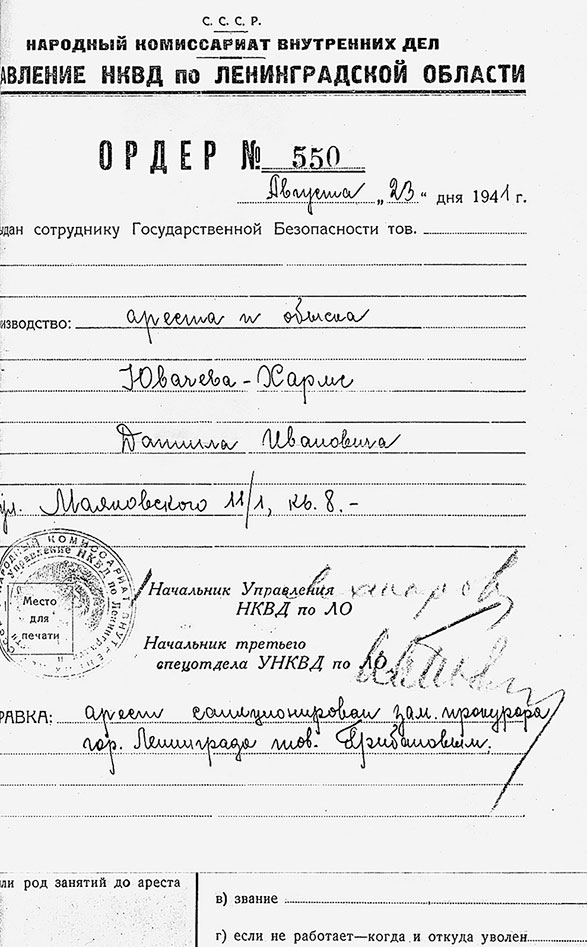 С. С. С. Р.
НАРОДНЫЙ КОМИССАРИАТ ВНУТРЕННИХ ДЕЛ
АВЛЕНИЕ НКВД по ЛЕНИНГРАДСКОЙ ОБЛАСТИ
ОРДЕР № 550
Августа „23“ дня 1941 г.
дан сотруднику Государственной Безопасности тов.
изводство: ареста и обыска
Ювачева-Хармс
Даниила Ивановича
ул. Маяковского 11/1, кв. 8.-
НАРОДНЫЙ КОМИССАРИАТ ВНУТРЕН
Управление НКВД по Ленингра
Место
для
печати
Начальник Управления
НКВД по ЛО
Начальник третьего
спецотдела УНКВД по ЛО
РАВКА: арест санкционирован зам. прокурора
гор. Ленинграда тов. Грибановым.
ли род занятий до ареста
в) звание
г) если не работает—когда и откуда уволен